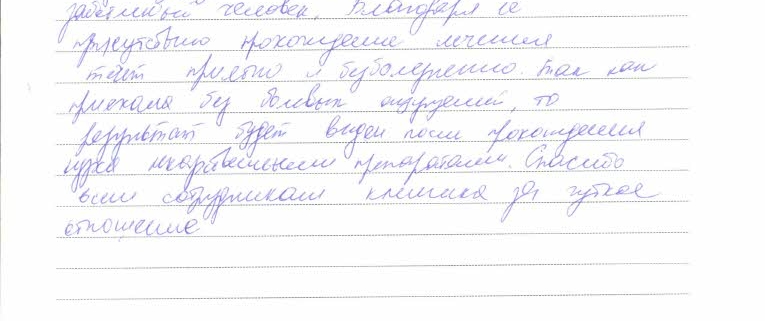 заботливый человек. Благодаря её
присутствию прохождение лечения
течёт приятно и безболезненно. Так как
приехала без болевых ощущений, то
результат будет виден после прохождения
курса лекарственными препаратами. Спасибо
всем сотрудникам клиники за чуткое
отношение